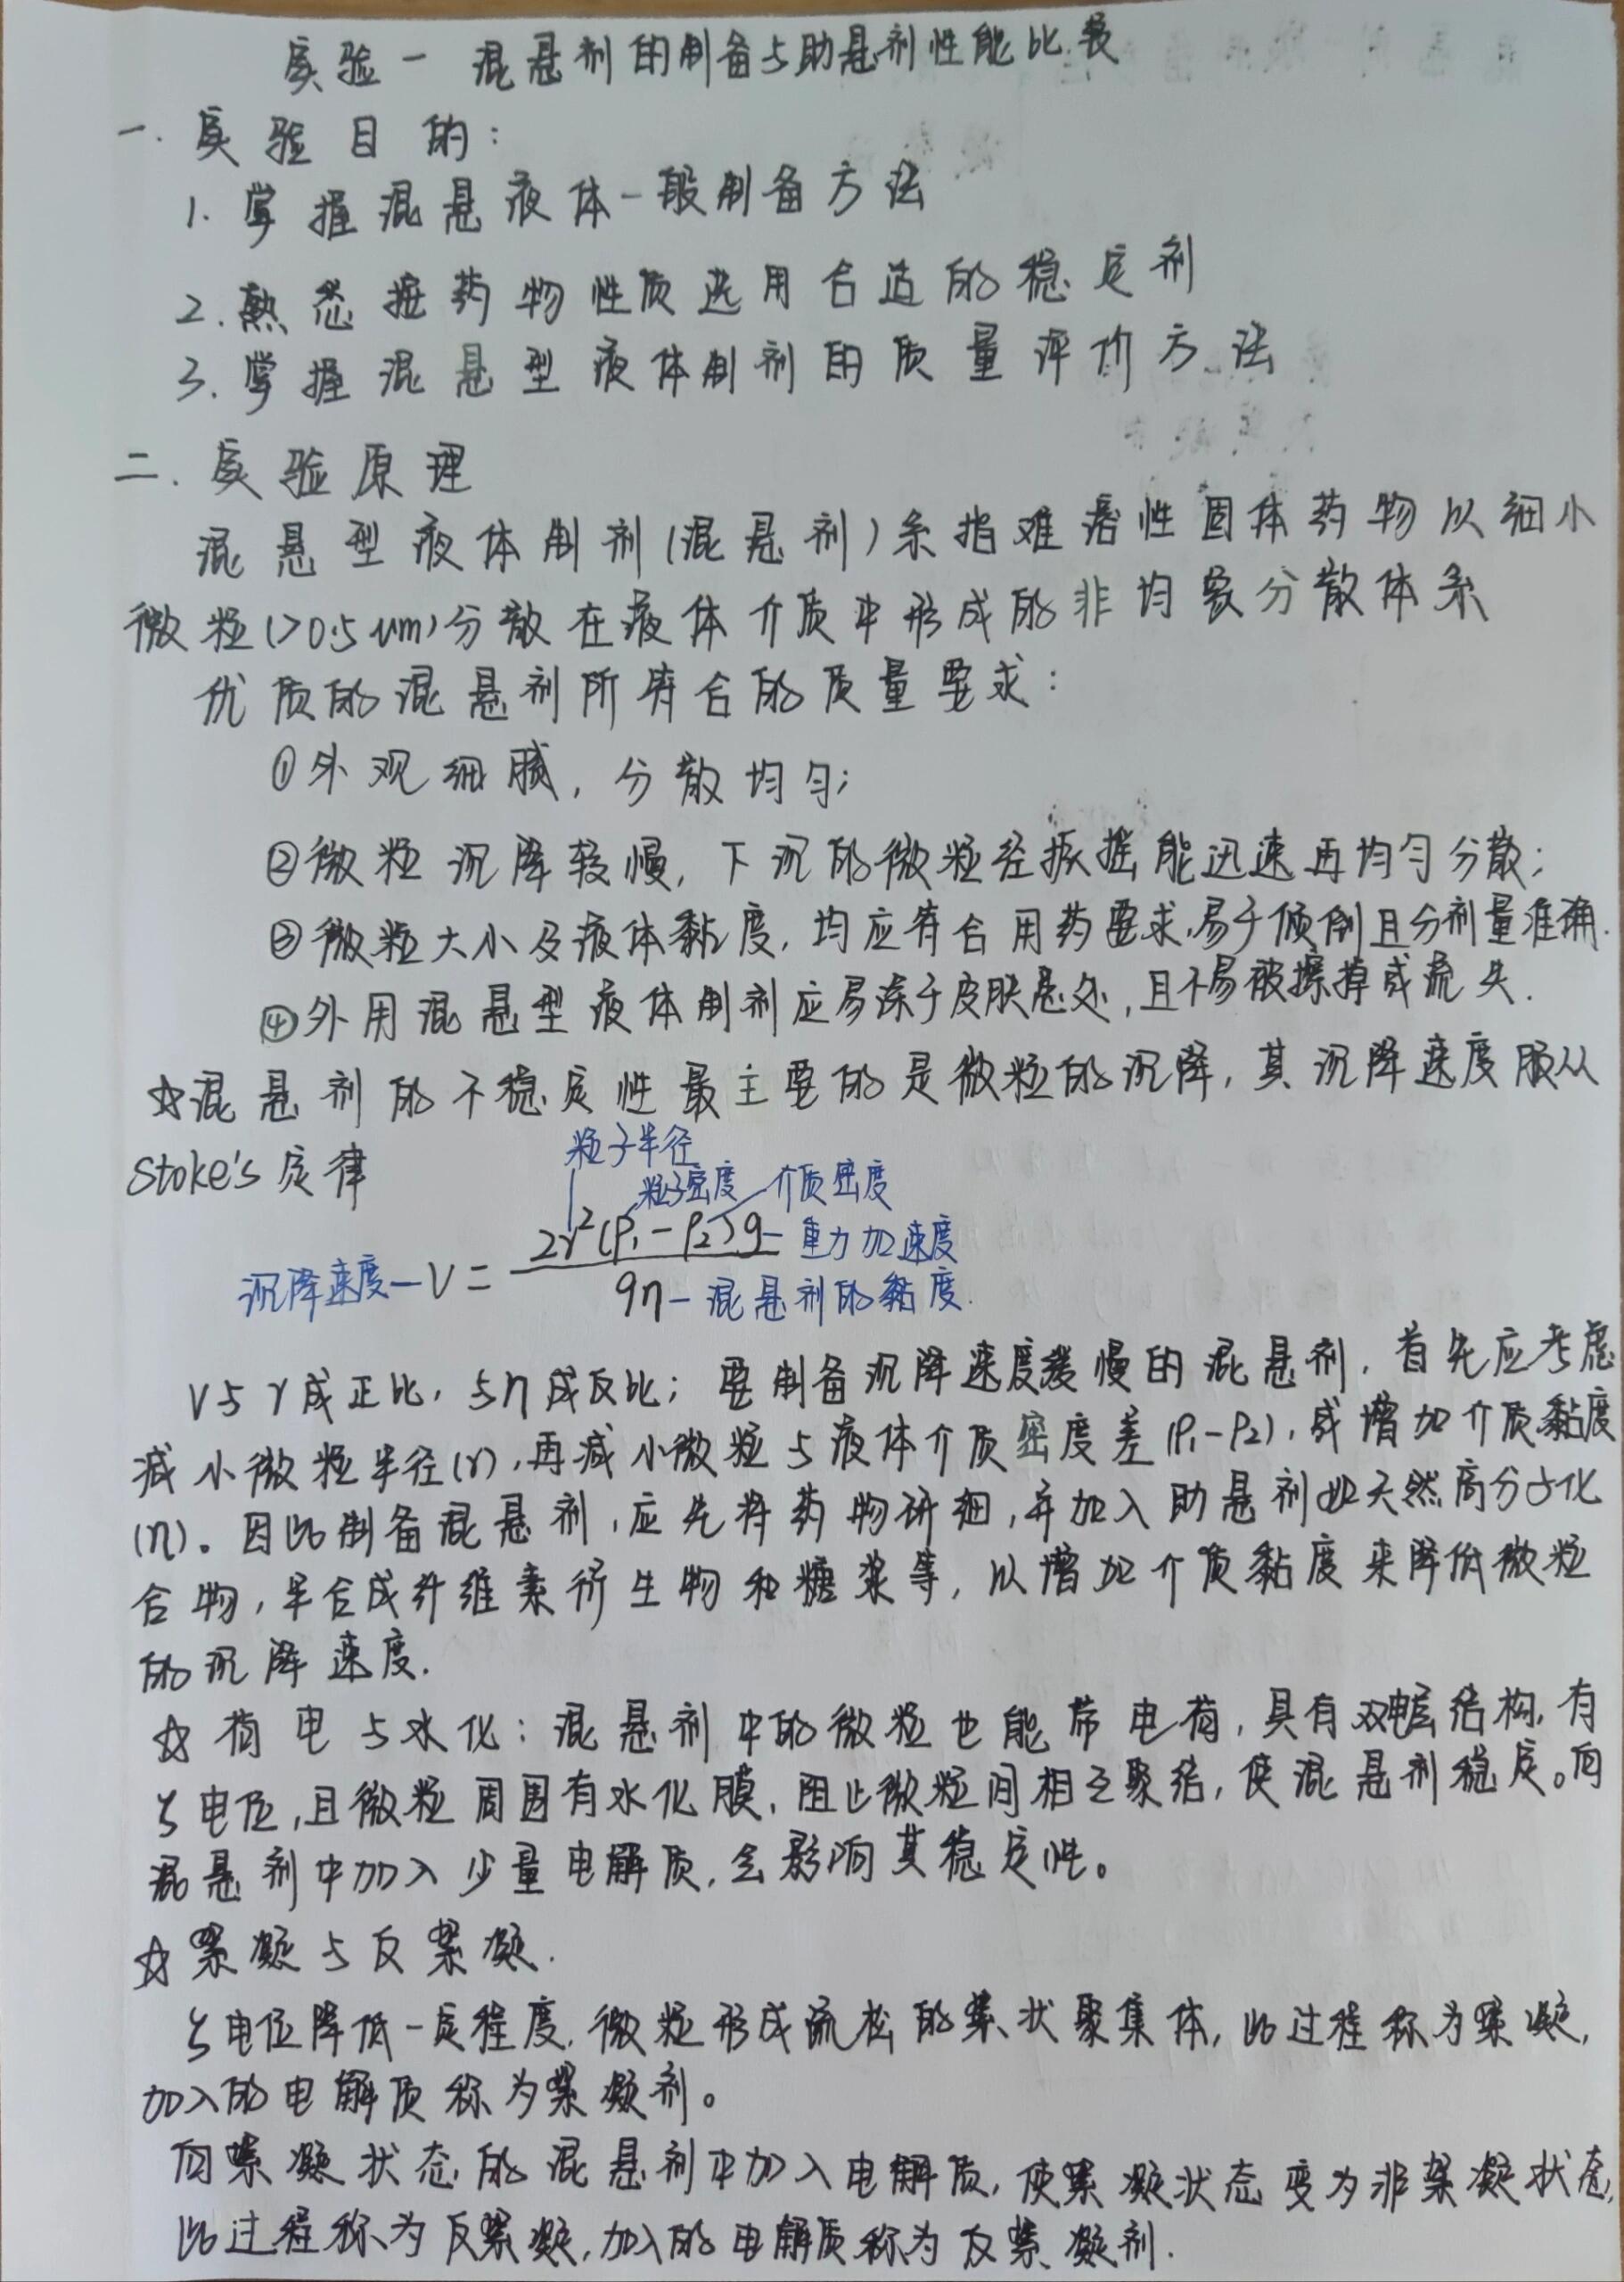 实验一 混悬剂的制备与助悬剂性能比较
一. 实验目的:
1. 掌握混悬液体一般制备方法
2. 熟悉按药物性质选用合适的稳定剂
3. 掌握混悬型液体制剂的质量评价方法
二. 实验原理
混悬型液体制剂(混悬剂)系指难溶性固体药物以细小
微粒(>0.5um)分散在液体介质中形成的非均匀分散体系
优质的混悬剂所符合的质量要求:
①外观细腻, 分散均匀;
②微粒沉降较慢, 下沉的微粒经振摇能迅速再均匀分散;
③微粒大小及液体黏度, 均应符合用药要求, 易于倾倒且分剂量准确.
④外用混悬型液体制剂应易涂于皮肤患处, 且不易被擦掉或流失.
☆混悬剂的不稳定性最主要的是微粒的沉降, 其沉降速度服从
Stoke's定律
粒子半径
粒子密度 介质密度
沉降速度—V = 2r²(ρ₁-ρ₂)g — 重力加速度
9η — 混悬剂的黏度.
V与r成正比, 与η成反比; 要制备沉降速度缓慢的混悬剂, 首先应考虑
减小微粒半径(r), 再减小微粒与液体介质密度差(ρ₁-ρ₂), 或增加介质黏度
(η)。因此制备混悬剂, 应先将药物研细, 并加入助悬剂如天然高分子化
合物, 半合成纤维素衍生物和糖浆等, 以增加介质黏度来降低微粒
的沉降速度.
☆荷电与水化: 混悬剂中的微粒也能带电荷, 具有双电层结构, 有
ζ电位, 且微粒周围有水化膜, 阻止微粒间相互聚结, 使混悬剂稳定。向
混悬剂中加入少量电解质, 会影响其稳定性。
☆絮凝与反絮凝.
ζ电位降低一定程度, 微粒形成疏松的絮状聚集体, 此过程称为絮凝,
加入的电解质称为絮凝剂。
向絮凝状态的混悬剂中加入电解质, 使絮凝状态变为非絮凝状态,
此过程称为反絮凝, 加入的电解质称为反絮凝剂.